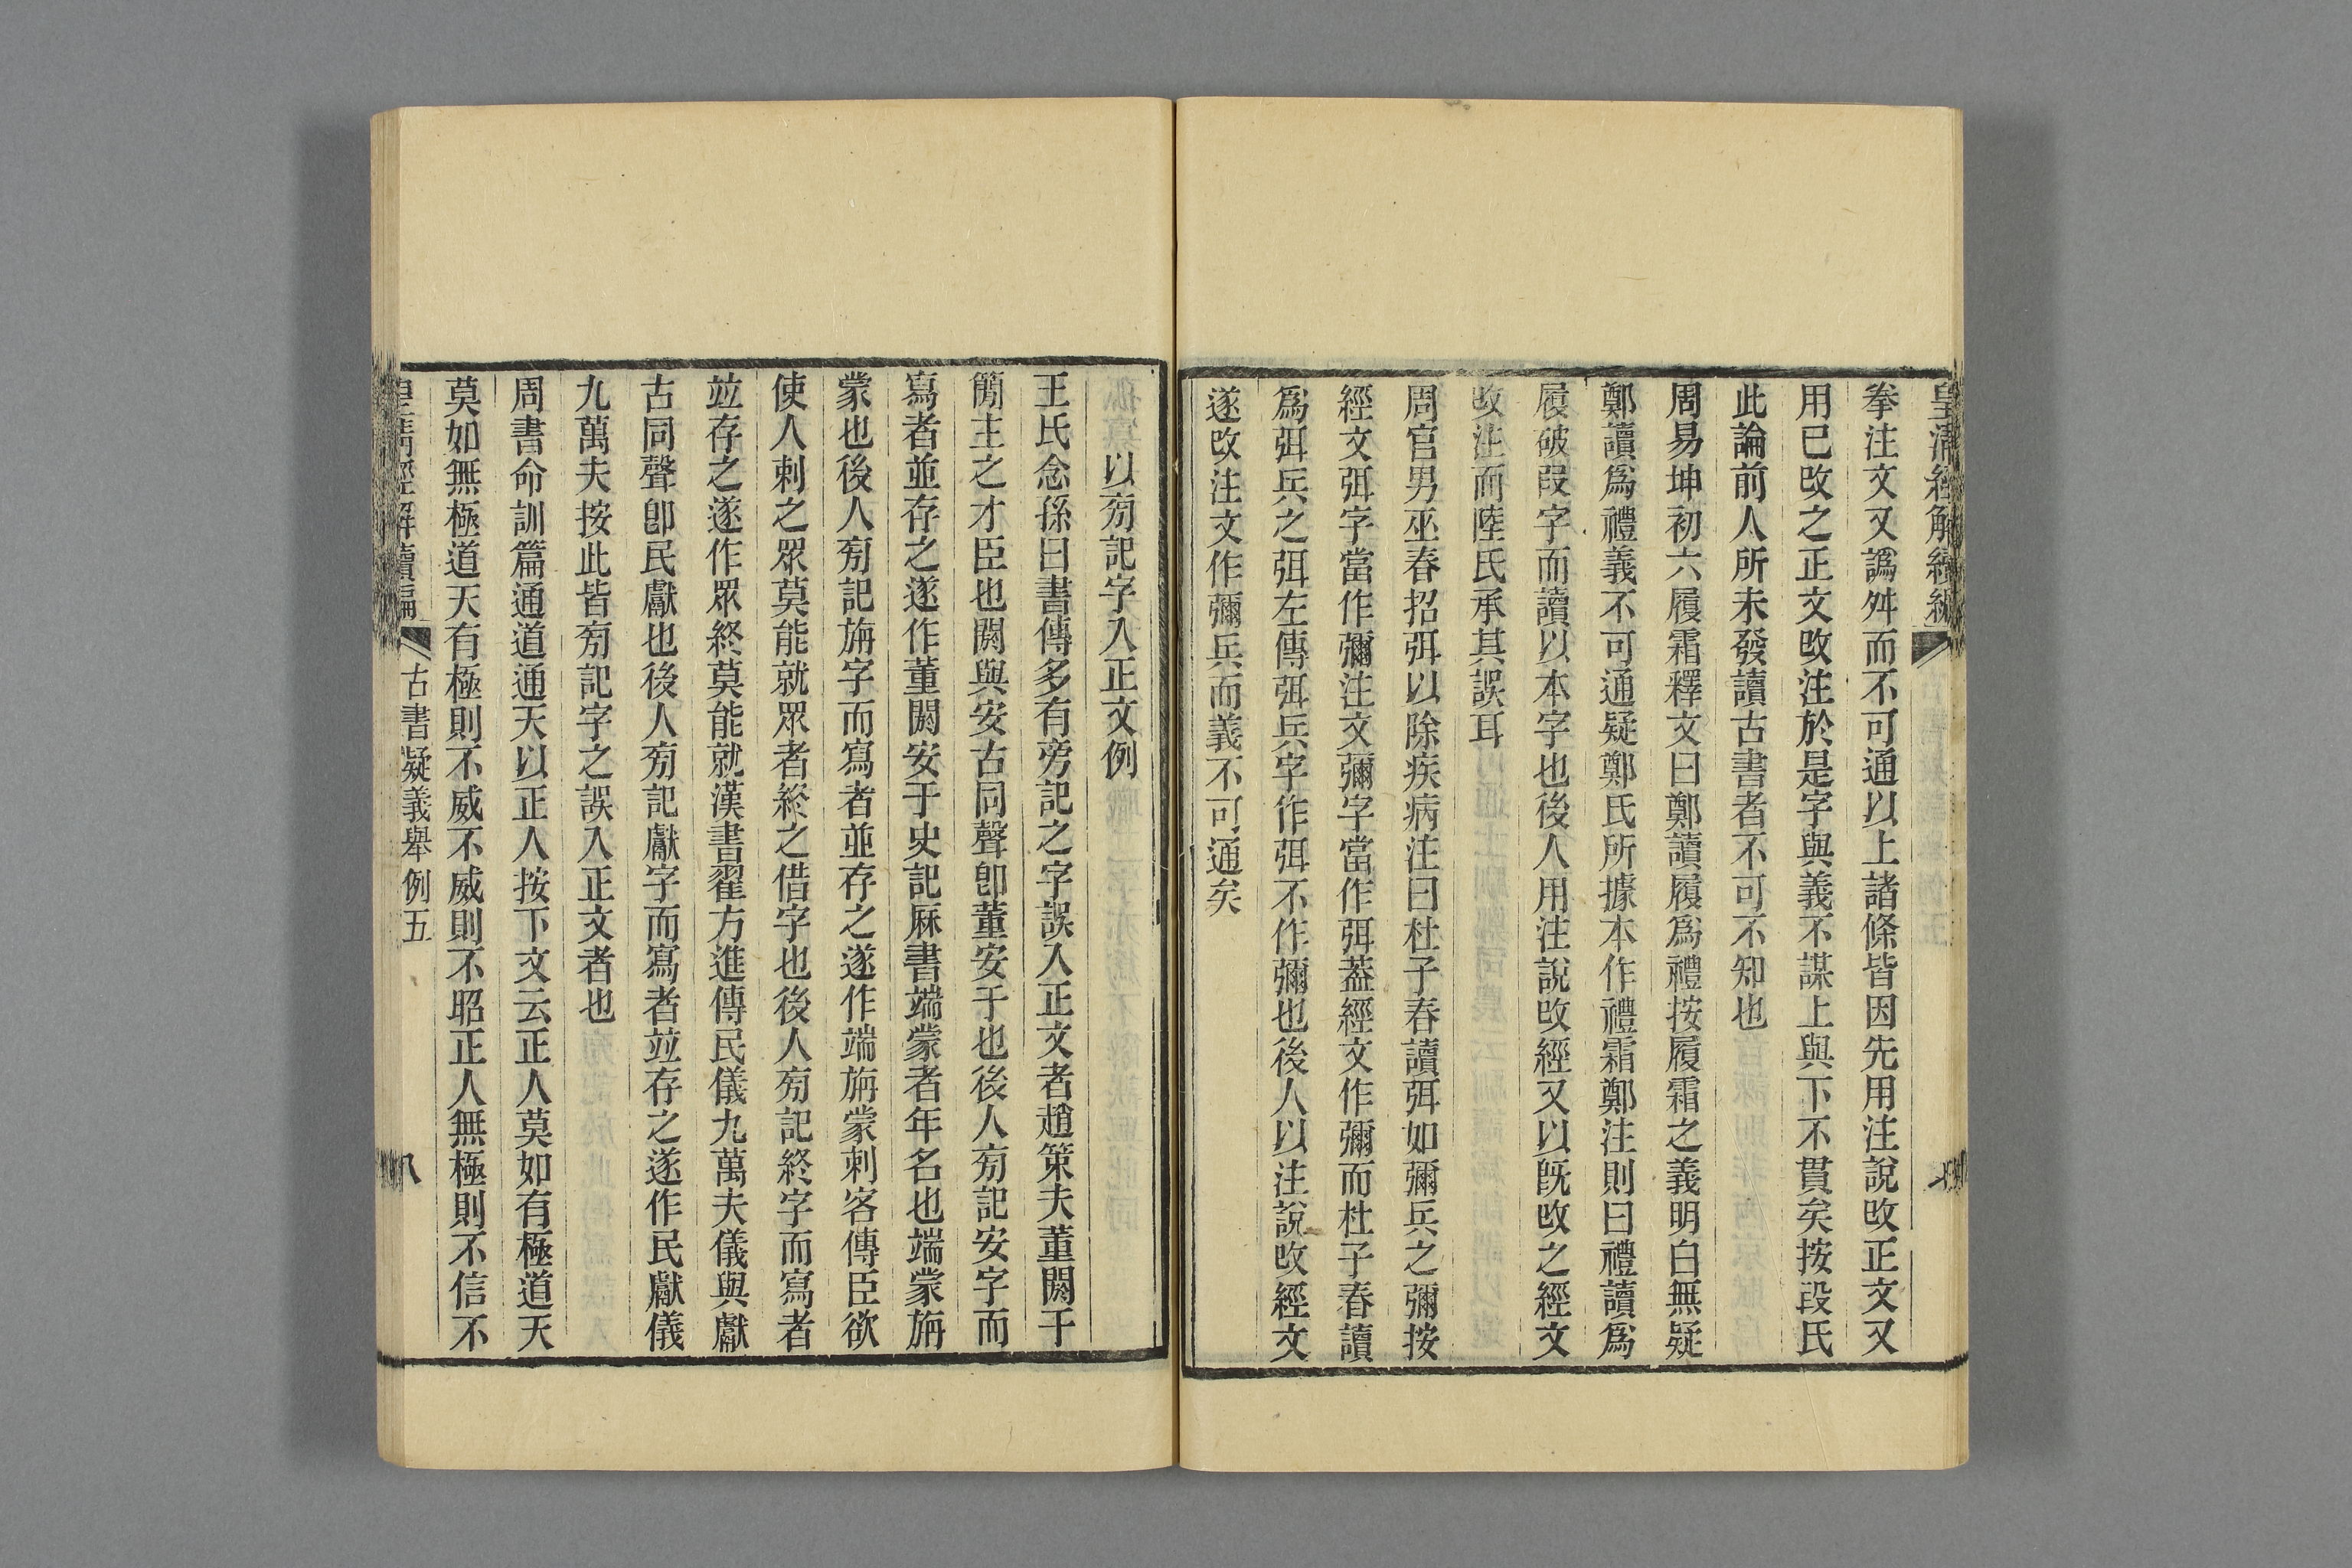 皇清經解續編
拳注文又譌舛而不可通以上諸條皆因先用注說改正文又
用已改之正文改注於是字與義不謀上與下不貫矣按段氏
此論前人所未發讀古書者不可不知也
周易坤初六履霜釋文曰鄭讀履爲禮按履霜之義明白無疑
鄭讀爲禮義不可通疑鄭氏所據本作禮霜鄭注則曰禮讀爲
履破叚字而讀以本字也後人用注說改經又以旣改之經文
改注而陸氏承其誤耳
周官男巫春招弭以除疾病注曰杜子春讀弭如彌兵之彌按
經文弭字當作彌注文彌字當作弭葢經文作彌而杜子春讀
爲弭兵之弭左傳弭兵字作弭不作彌也後人以注說改經文
遂改注文作彌兵而義不可通矣
以㫄記字入正文例
王氏念孫曰書傳多有旁記之字誤入正文者趙策夫董閼于
簡主之才臣也閼與安古同聲卽董安于也後人㫄記安字而
寫者並存之遂作董閼安于史記厤書端蒙者年名也端蒙旃
蒙也後人㫄記旃字而寫者並存之遂作端旃蒙刺客傳臣欲
使人刺之眾莫能就眾者終之借字也後人㫄記終字而寫者
竝存之遂作眾終莫能就漢書翟方進傳民儀九萬夫儀與獻
古同聲卽民獻也後人㫄記獻字而寫者竝存之遂作民獻儀
九萬夫按此皆㫄記字之誤入正文者也
周書命訓篇通道通天以正人按下文云正人莫如有極道天
莫如無極道天有極則不威不威則不昭正人無極則不信不
皇清經解續編
古書疑義舉例五
八